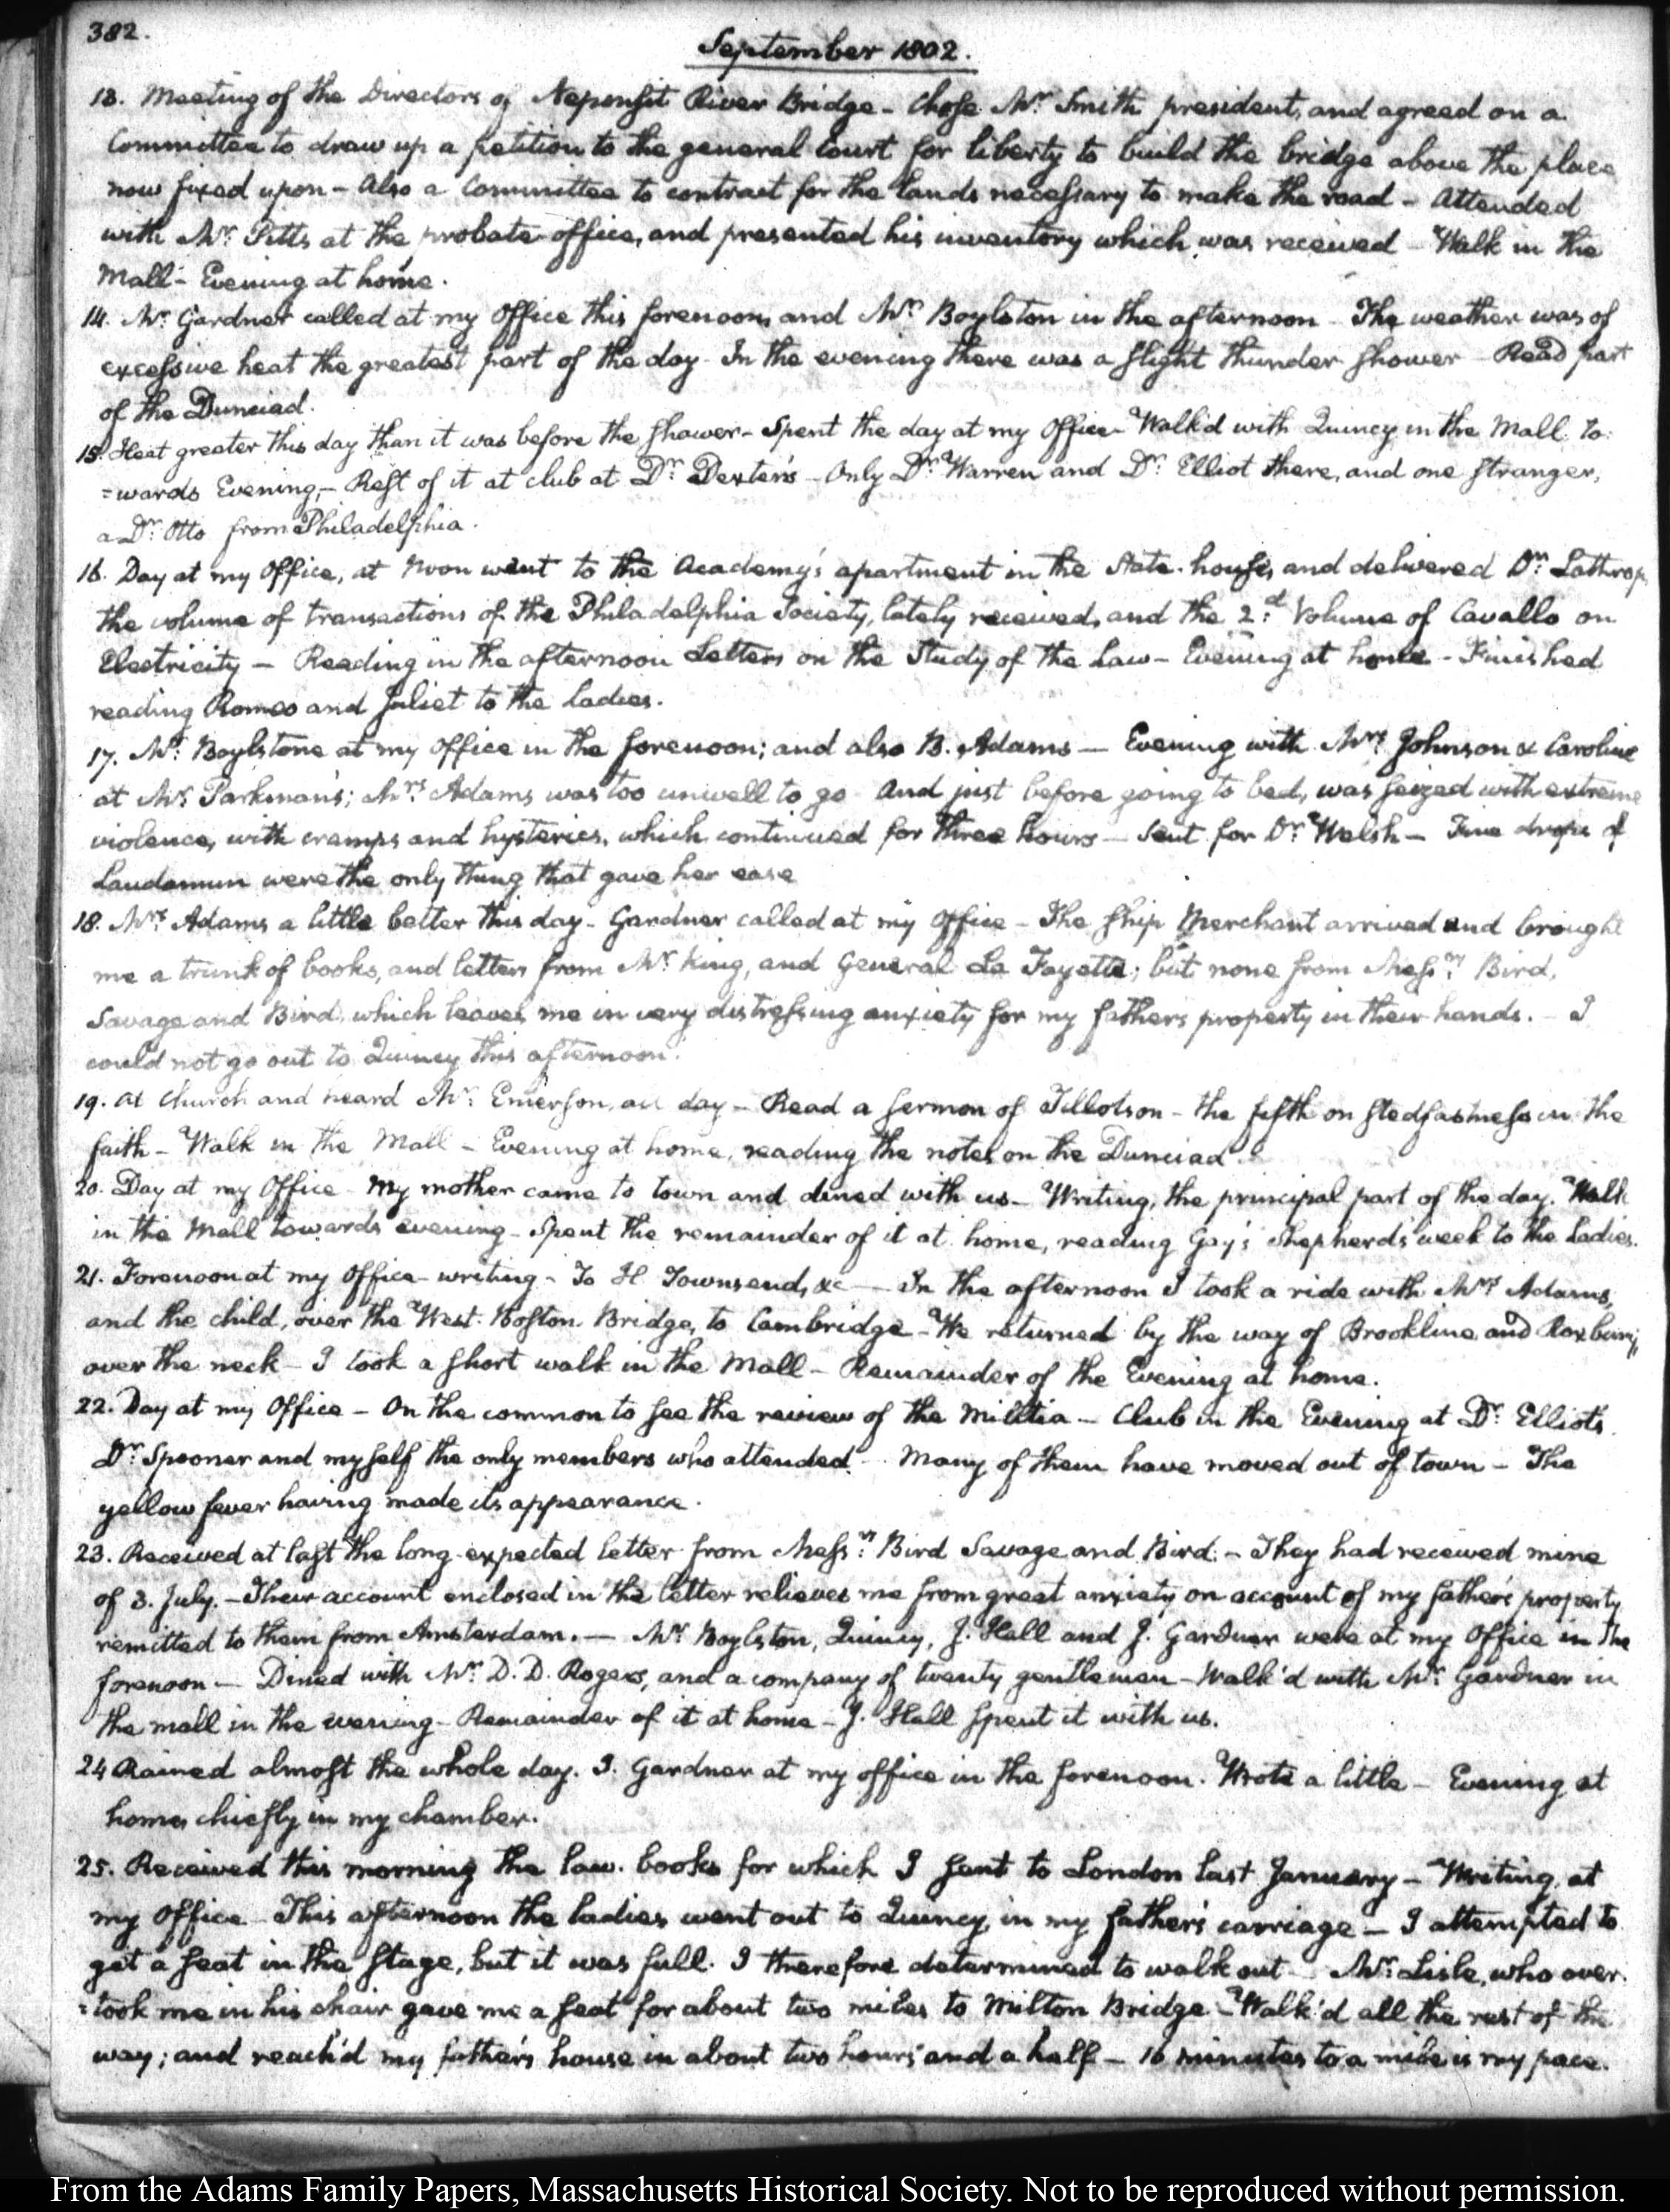 382.
September 1802.
13. Meeting of the Directors of Neponsit River Bridge - Chose Mr. Smith president, and agreed on a
Committee to draw up a petition to the general Court for liberty to build the bridge above the place
now fixed upon - Also a Committee to contract for the lands necessary to make the road - Attended
with Mr. Pitts at the probate-office, and presented his inventory which was received - Walk in the
Mall - Evening at home.
14. Mr. Gardner called at my Office this forenoon, and Mr. Boylston in the afternoon - The weather was of
excessive heat the greatest part of the day - In the evening there was a slight thunder shower - Read part
of the Dunciad.
15. Heat greater this day than it was before the shower - Spent the day at my Office - Walk'd with Quincy in the Mall to:
=wards Evening, - Rest of it at club at Dr. Dexter's - Only Dr. Warren and Dr. Elliot there, and one stranger,
a Dr. Otto from Philadelphia.
16. Day at my Office, at Noon went to the Academy's apartment in the State-house, and delivered Dr. Lathrop,
the volume of transactions of the Philadelphia Society, lately received, and the 2d. Volume of Cavallo on
Electricity - Reading in the afternoon Letters on the Study of the Law - Evening at home - Finished
reading Romeo and Juliet to the ladies.
17. Mr. Boylstone at my Office in the forenoon; and also B. Adams - Evening with Mrs. Johnson & Caroline
at Mr. Parkman's; Mrs. Adams was too unwell to go And just before going to bed, was seized with extreme
violence, with cramps and hysterics, which continued for three hours - Sent for Dr. Welsh - drops of
Laudanum were the only thing that gave her ease
18. Mrs. Adams a little better this day - Gardner called at my Office - The ship Merchant arrived and brought
me a trunk of books, and letters from Mr. King, and General La Fayette; but none from Messrs. Bird,
Savage and Bird, which leaves me in very distressing anxiety for my father's property in their hands. - I
could not go out to Quincy this afternoon.
19. At Church and heard Mr. Emerson, all day - Read a sermon of Tillotson - the fifth on stedfastness in the
faith - Walk in the Mall - Evening at home, reading the notes on the Dunciad
20. Day at my Office - My mother came to town and dined with us - Writing, the principal part of the day. Walk
in the Mall towards evening - Spent the remainder of it at home, reading Gay's Shepherd's week to the Ladies.
21. Forenoon at my Office - writing - To H Townsend, &c - In the afternoon I took a ride with Mrs. Adams,
and the child, over the West-Boston Bridge, to Cambridge - We returned by the way of Brookline and Roxbury,
over the neck - I took a short walk in the Mall - Remainder of the Evening at home.
22. Day at my Office - On the common to see the review of the Militia - Club in the Evening at Dr. Elliot's.
Dr. Spooner and myself the only members who attended - Many of them have moved out of town - The
yellow fever having made its appearance.
23. Received at last the long-expected letter from Messrs. Bird Savage and Bird. - They had received mine
of 3. July. - Their account enclosed in the letter relieves me from great anxiety on account of my father's property
remitted to them from Amsterdam. - Mr. Boylston, Quincy, J. Hall and J. Gardner were at my Office in the
forenoon - Dined with Mr. D. D. Rogers, and a company of twenty gentlemen - Walk'd with Mr. Gardner in
the mall in the evening - Remainder of it at home - J. Hall spent it with us.
24 Rained almost the whole day. J. Gardner at my office in the forenoon. Wrote a little - Evening at
home, chiefly in my chamber.
25. Received this morning the law-books for which I sent to London last January - Writing at
my Office - This afternoon the ladies went out to Quincy, in my father's carriage - I attempted to
get a seat in the stage, but it was full. I therefore determined to walk out - Mr. Lisle, who over:
=took me in his chair gave me a seat for about two miles to Milton Bridge - Walk'd all the rest of the
way; and reach'd my father's house in about two hours and a half - 16 minutes to a mile is my pace.
From the Adams Family Papers, Massachusetts Historical Society. Not to be reproduced without permission.